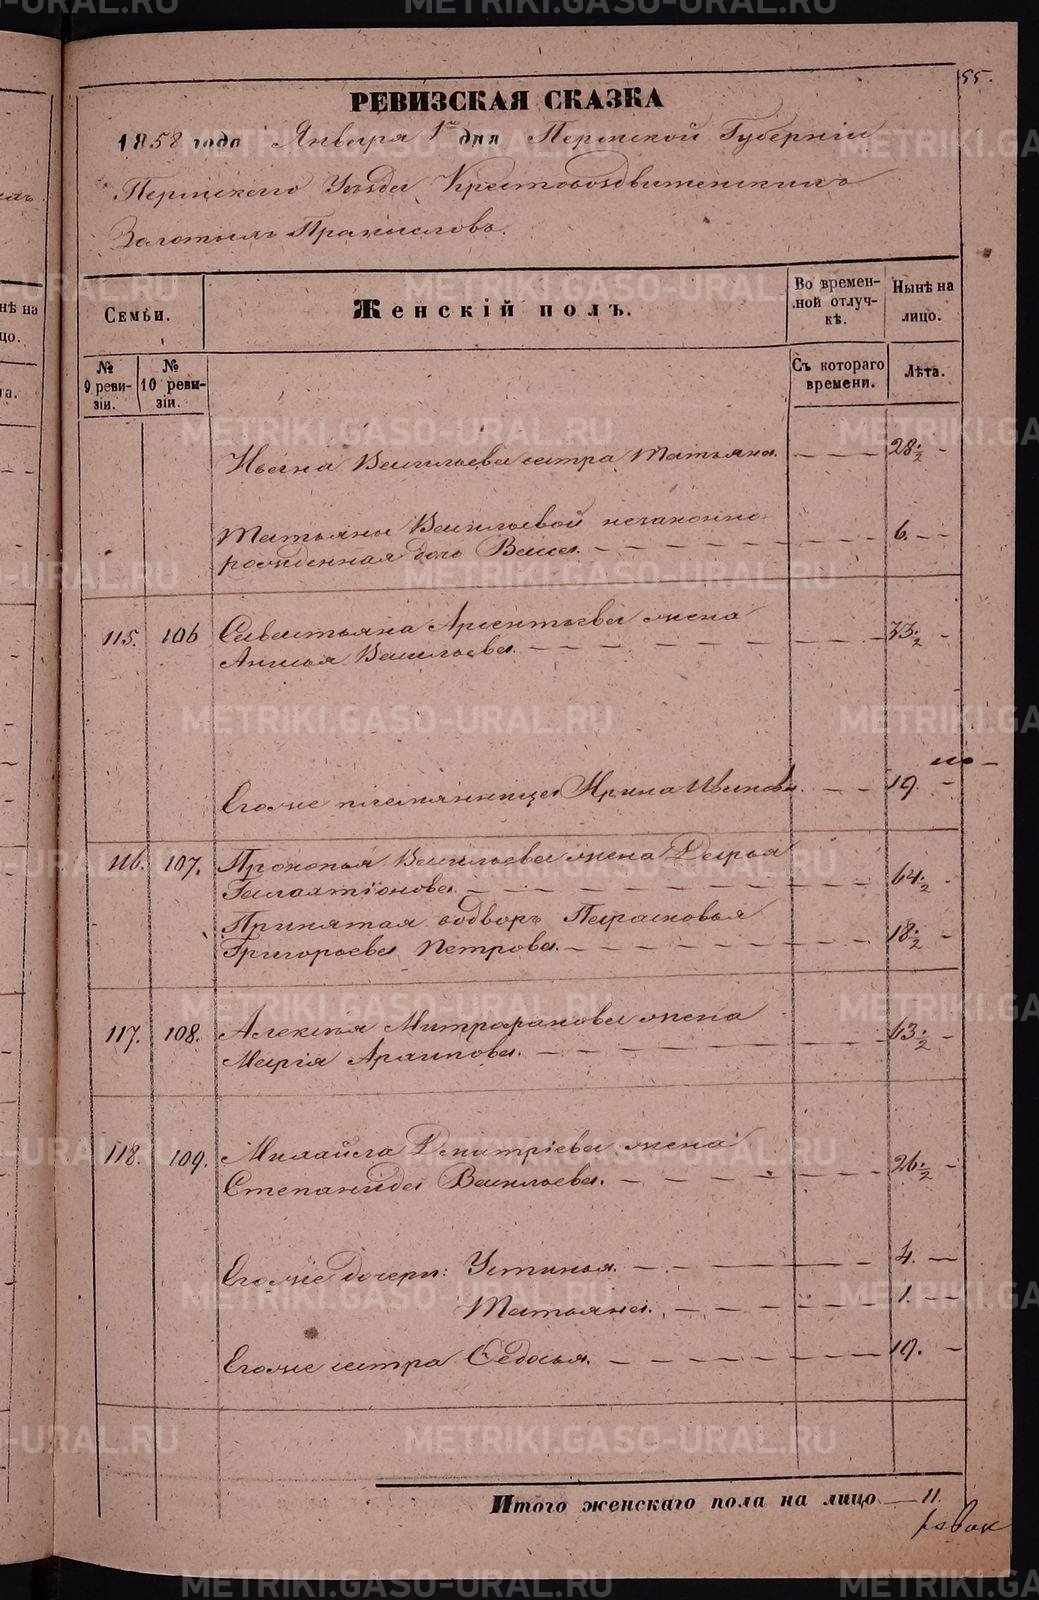 METRIKI.GASO-URAL.RU
55.
РЕВИЗСКАЯ СКАЗКА
1858 года Января 1го дня Пермской Губерніи
Пермскаго Уѣзда Крестовоздвиженскихъ
Золотыхъ Промысловъ.
Семьи.
Женскій полъ.
Во времен-
ной отлуч-
кѣ.
Нынѣ на
лицо.
№
9 реви-
зіи.
№
10 реви-
зіи.
Съ котораго
времени.
Лѣта.
Васильева сестра Татьяна. 28 1/2
Татьяны Васильевой незаконно
рожденная дочь Васса. 6.
115. 106 Савастьяна Арсентьева жена
Анисья Васильева. 33 1/2
Егоже племянница Ирина Иванова. 19.
116. 107. Прокопья Васильева жена Дарья
Галахтіонова. 64 1/2
Принятая водворъ Парасковья
Григорьева Петрова. 18 1/2
117. 108. Алексѣя Митрофанова жена
Марія Архипова. 63 1/2
118. 109. Михайла Дмитріева жена
Степанида Васильева. 26 1/2
Егоже дочери: Устинья. 4.
Татьяна. 1.
Егоже сестра Федосья. 19.
Итого женскаго пола на лицо 11.